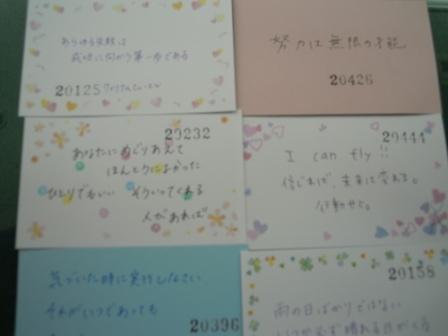 あらゆる失敗は
成功に向かう第一歩である
20125
努力は無限の可能
20426
20232
あなたにめぐりあえて
ほんとうによかった
ひとりでもいい そういってくれる
人があれば
20444
I can fly!!
信じれば、未来は変わる。
行動せよ。
気づいた時に実行しなさい
それがいつであっても
20396
20158
雨の日ばかりではない
いつか必ず晴れる日がくる